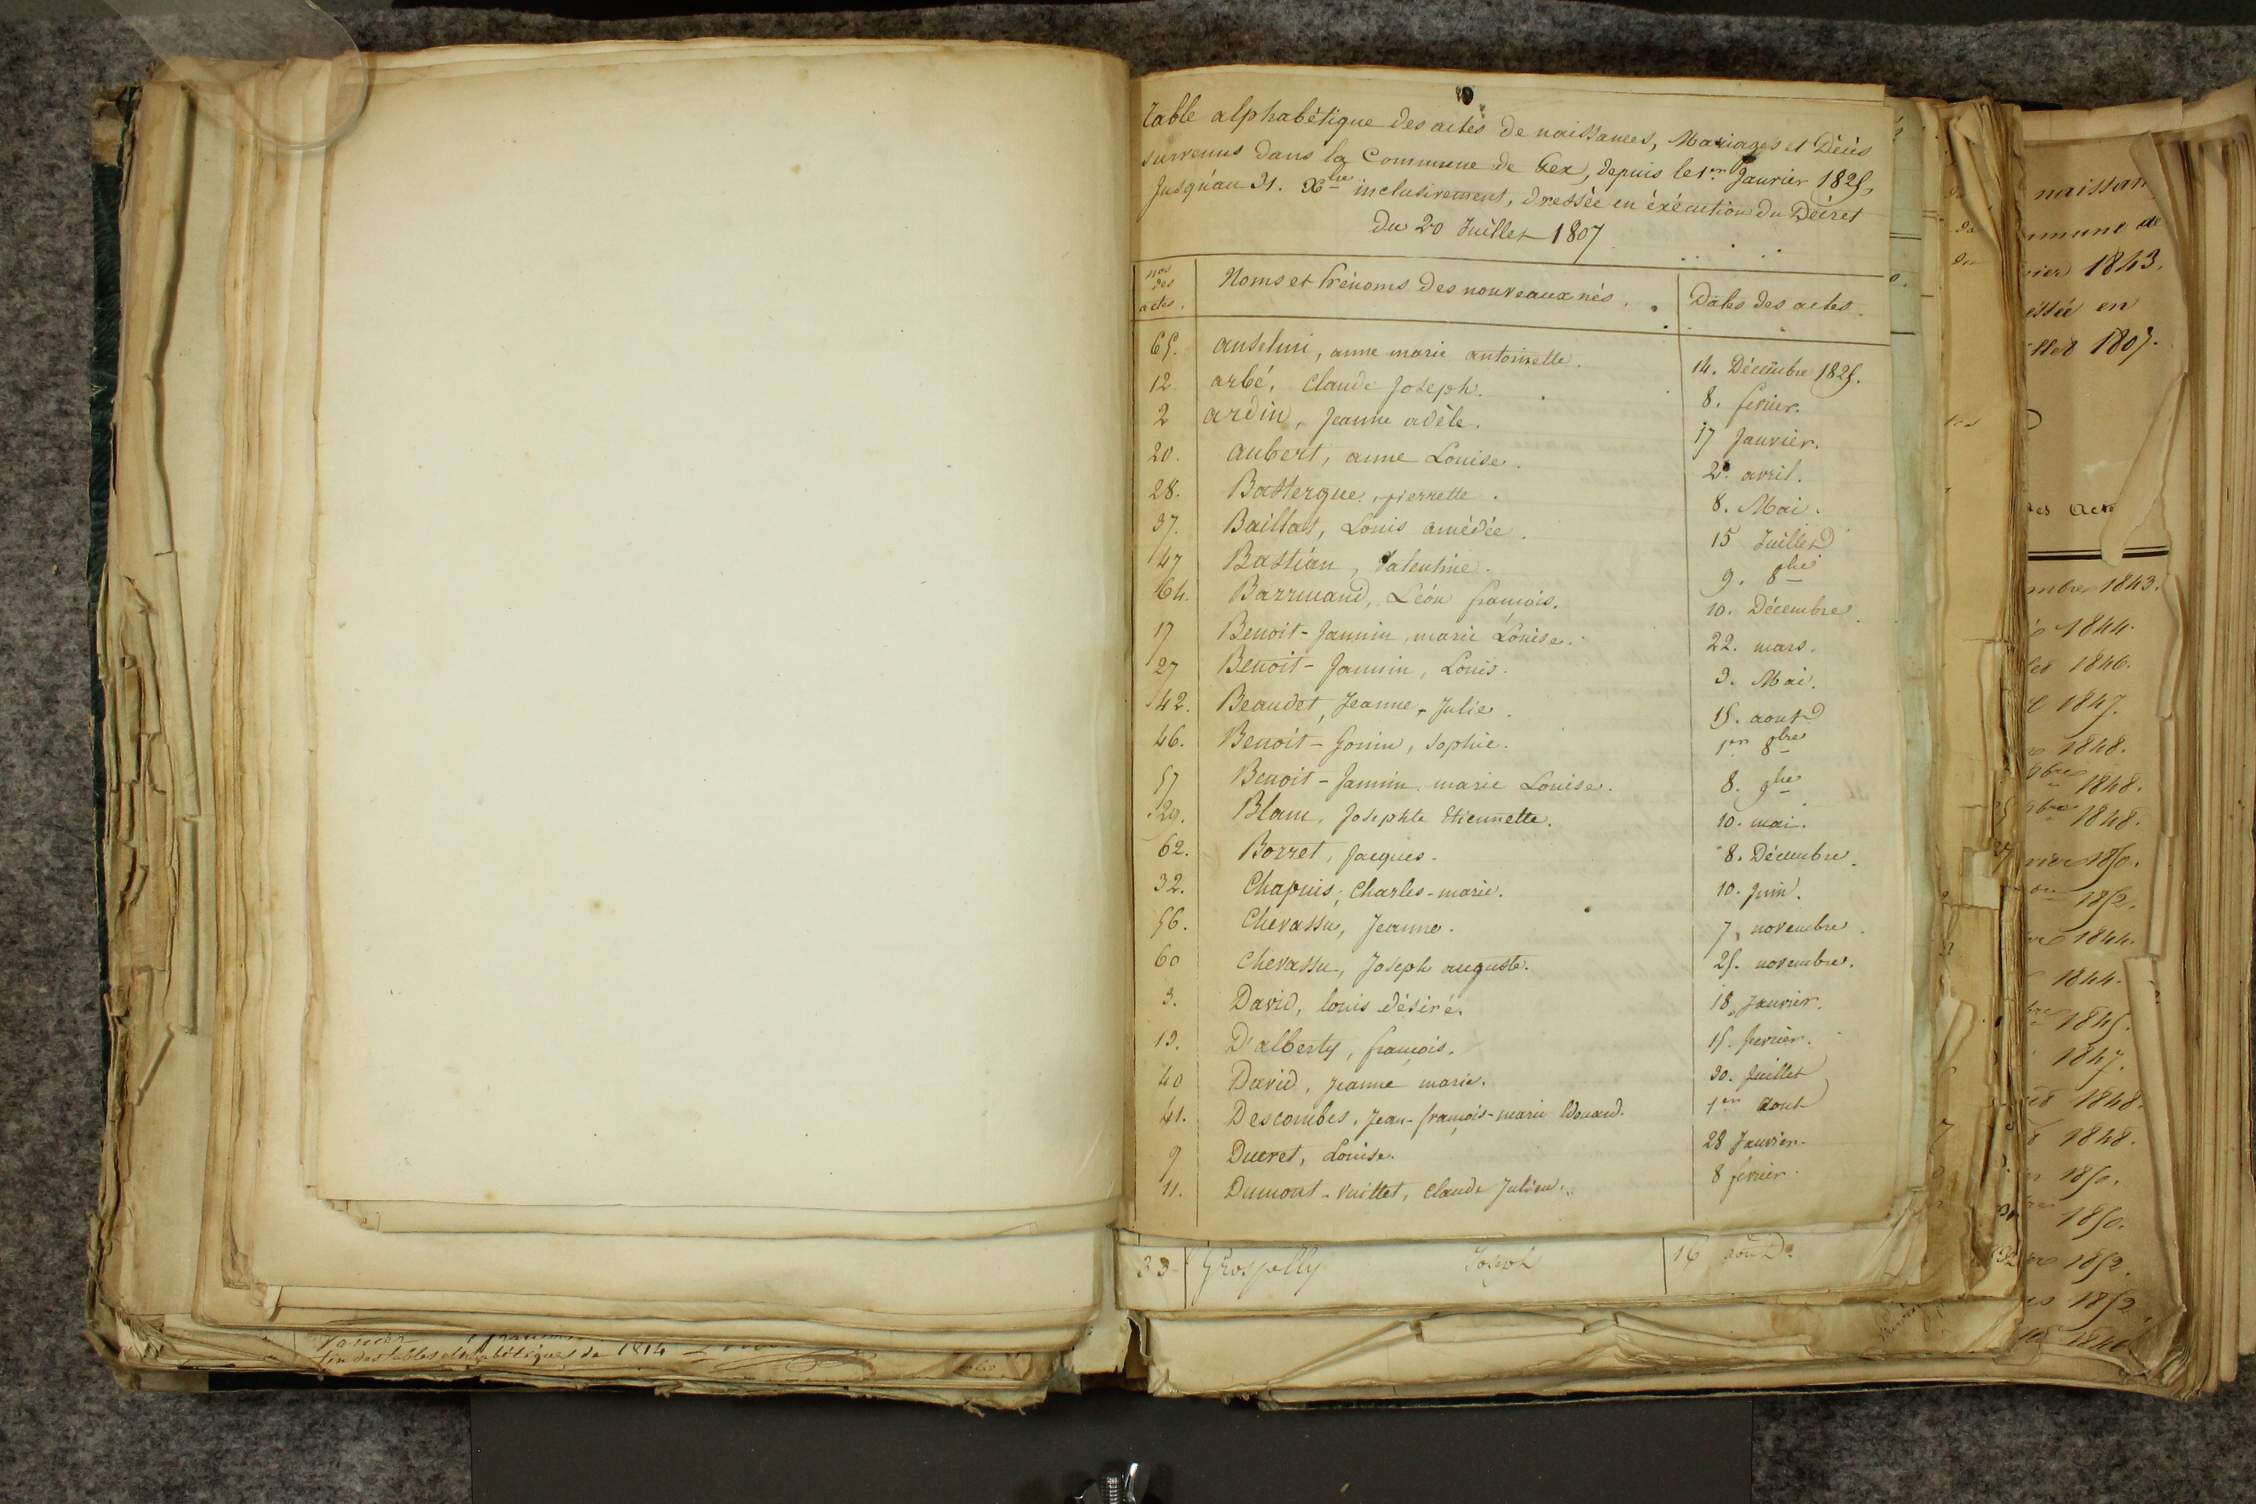 Table alphabétique des actes de naissances, Mariages et Décès
survenus dans la Commune de Gex, depuis le 1er Janvier 1825,
Jusqu'au 31. Xbre inclusivement, dressée en éxécution du Décret
du 20 Juillet 1807
nos des actes. Noms et Prénoms des nouveaux nés. Dates des actes.
65. anselmi, anne marie antoinette. 14. Décembre 1825.
12 arbé, Claude Joseph. 8. fevrier.
2 ardin, Jeanne adèle. 17 Janvier.
20. aubert, anne Louise. 2. avril.
28. Basterque, pierrette. 8. Mai.
37. Baillat, Louis amédée. 15 Juillet
47 Bastian, Valentine. 9. 8bre
64. Barrmand, Léon françois. 10. Décembre.
17 Benoit-Jannin, marie Louise. 22. mars.
27 Benoit-Jannin, Louis. 3. Mai.
42. Beaudet, Jeanne, Julie. 15. aout
46. Benoit-Gonin, Sophie. 1er 8bre
57 Benoit-Jannin, marie Louise. 8. 9bre
29. Blanc, Josephte Etiennette. 10. mai.
62. Borret, Jacques. 8. Décembre.
32. Chapuis, Charles-marie. 10. Juin.
56. Chevassu, Jeanne. 7. novembre.
60 Chevassu, Joseph auguste. 25. novembre.
3. David, louis désiré. 18. Janvier.
13. D'alberty, françois. 15. fevrier.
40 David, Jeanne marie. 30. Juillet
41. Descombes, Jean-françois-marie Edouard. 1er aout
9 Ducret, Louise. 28 Janvier.
11. Dumont-Vuillet, Claude Julien. 8 fevrier.
33 Grospelly Joseph 16
fin des tables alphabétiques de 1814
naissan
mmune de
vier 1843.
essée en
llet 1807.
des Acte
mbre 1843.
1844.
1846.
1847.
1848.
9bre 1848.
1848.
vier 1850.
1852.
1844.
1844.
1845.
1847.
1848.
1848.
1850.
1850.
1852.
1852
1846